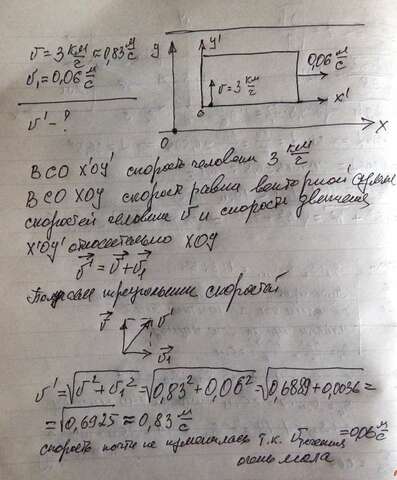 υ = 3 км/г ≈ 0,83 м/с
υ₁ = 0,06 м/с
υ' - ?
y
y'
0,06 м/с
υ = 3 км/г
0
x'
0
x
В СО X'OY' скорость человека 3 км/г
В СО XOY скорость равна векторной сумме
скоростей человека υ и скорости движения
X'OY' относительно XOY
υ⃗' = υ⃗ + υ⃗₁
Получаем треугольник скоростей
υ⃗
υ'
υ⃗₁
υ' = √υ² + υ₁² = √0,83² + 0,06² = √0,6889 + 0,0036 =
= √0,6925 ≈ 0,83 м/с
скорость почти не изменилась т.к. υ течения = 0,06 м/с
очень мала